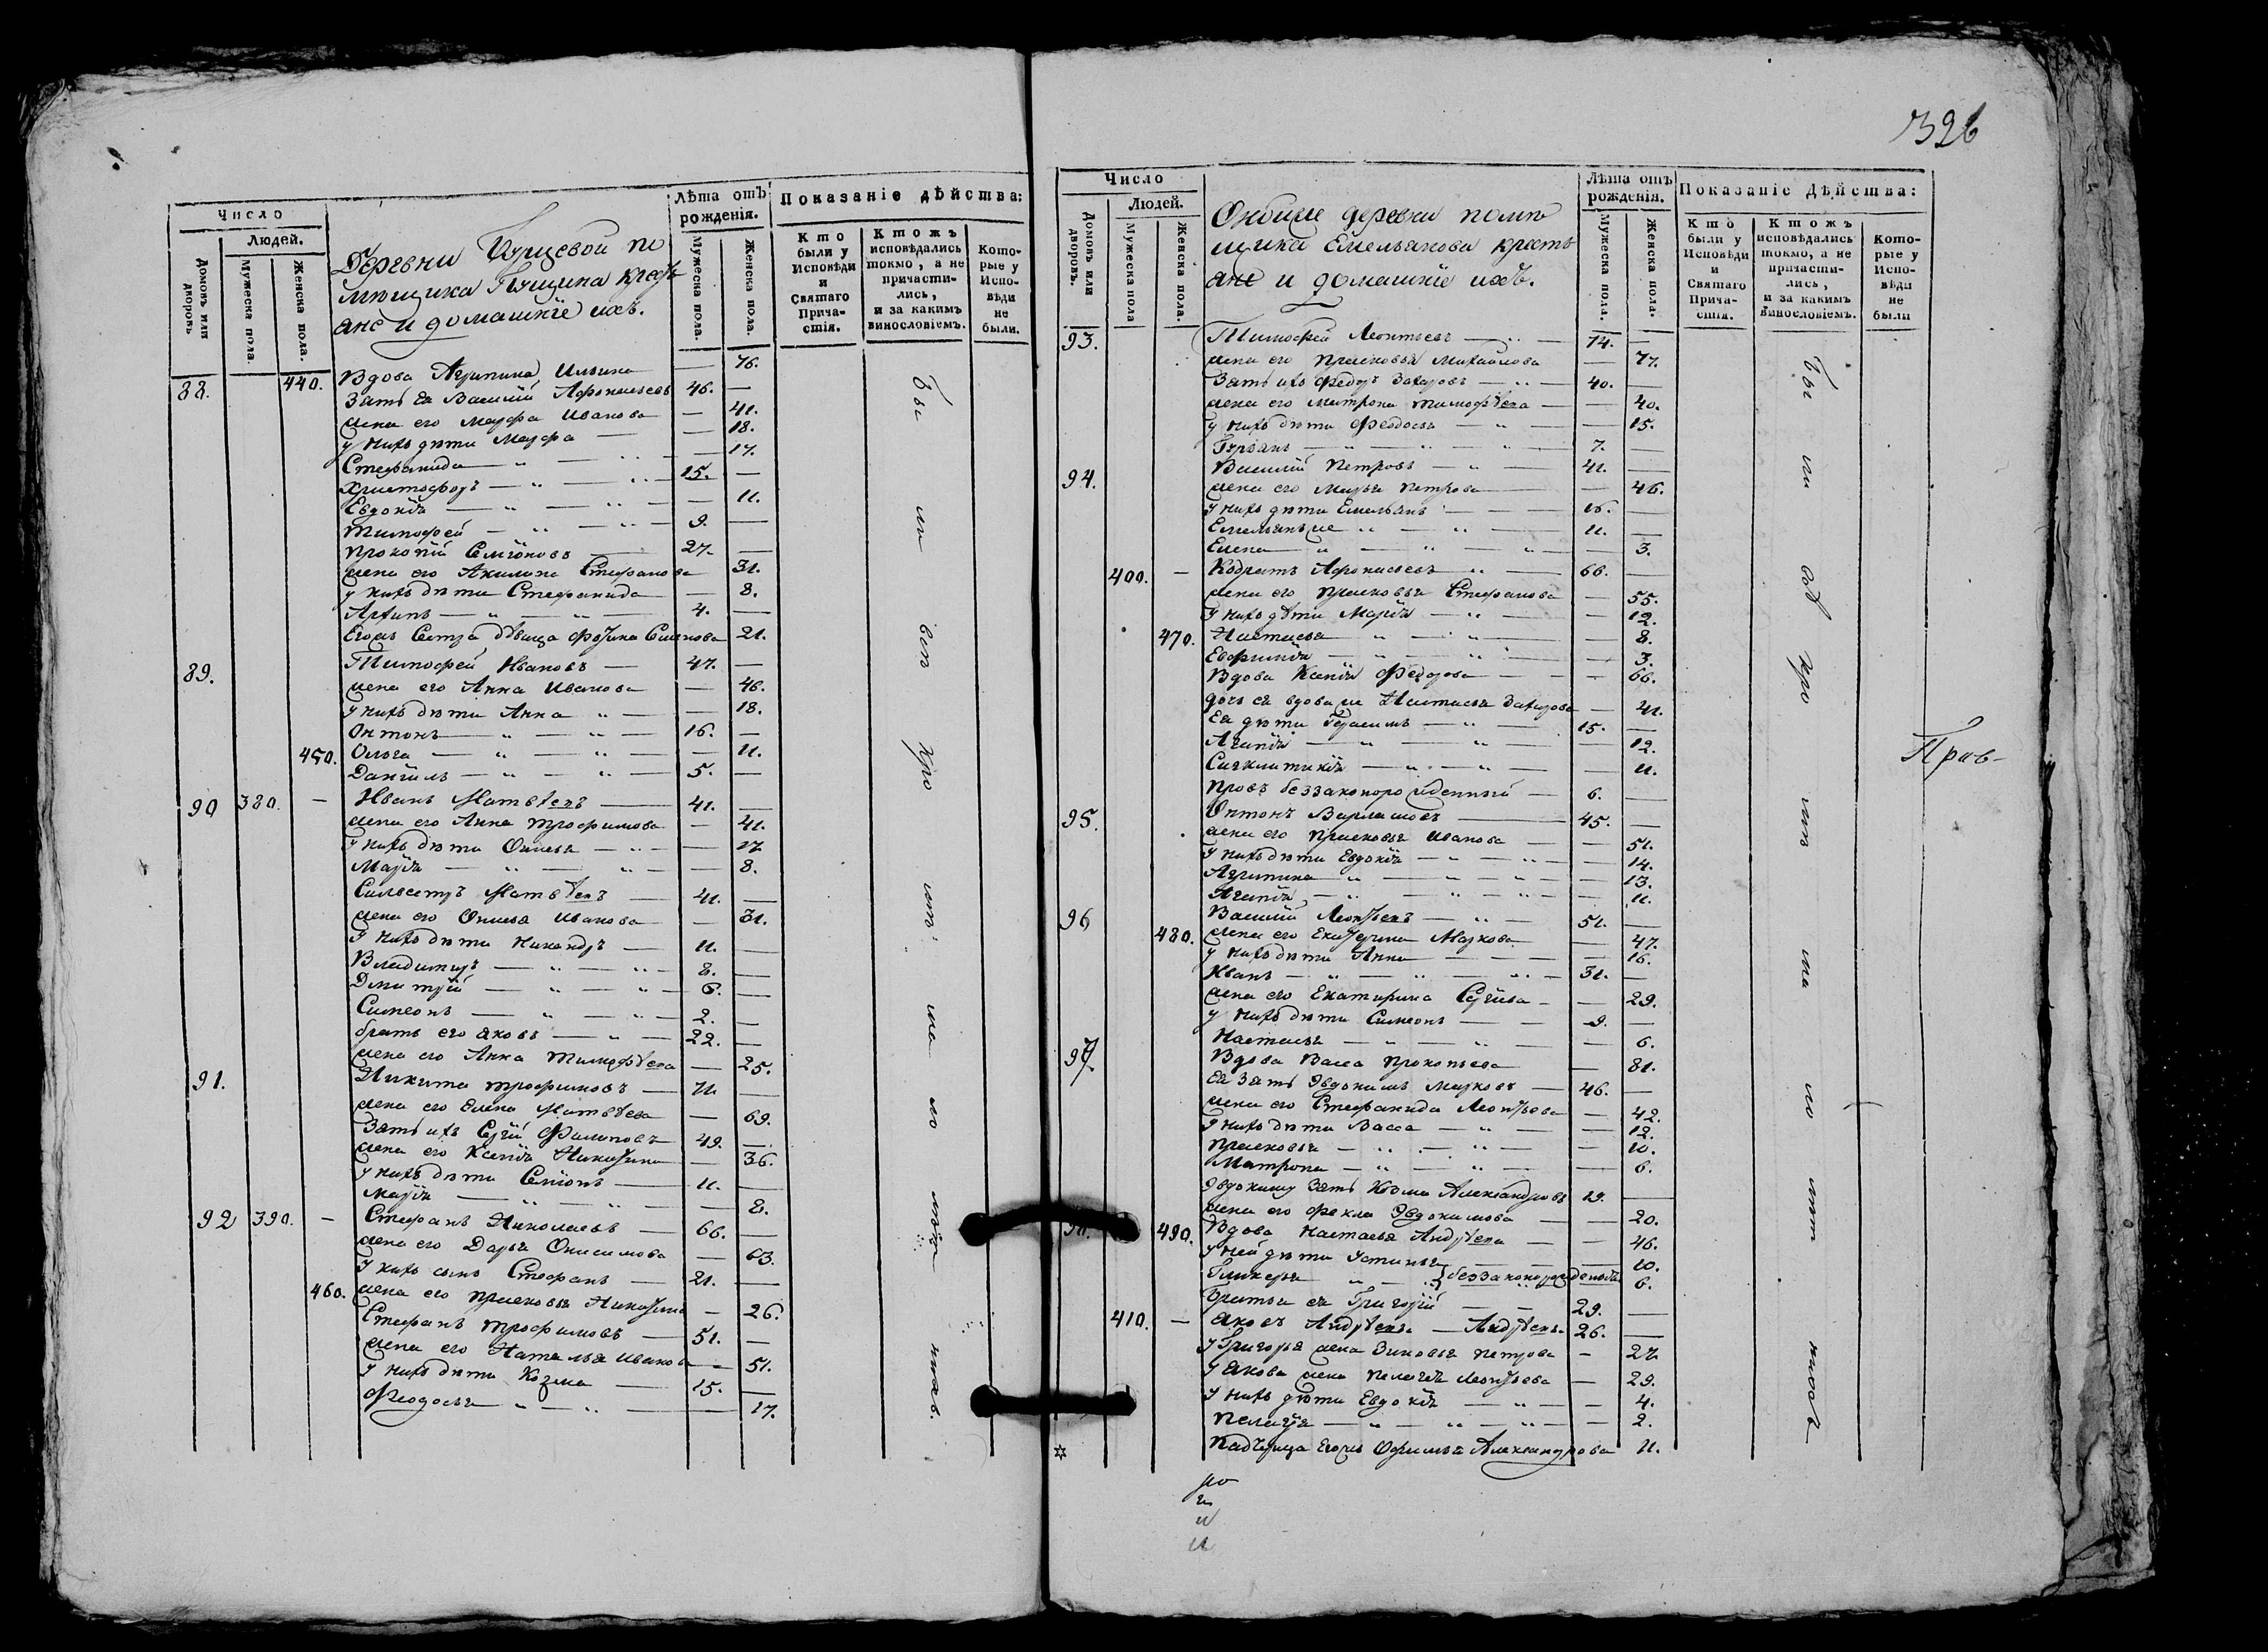 326
Число
Людей.
Домовъ или дворовъ.
Мужеска пола.
Женска пола.
Деревни Бурцевой по
мѣщика Пущина кресть
яне и домашнiе ихъ.
Лѣта отъ рожденiя.
Мужеска пола.
Женска пола.
Показанiе дѣйства:
Кто были у Исповѣди и Святаго Причастiя.
Ктожъ исповѣдались токмо, а не причастились, и за какимъ винословiемъ.
Которые у Исповѣди не были.
88. 440. Вдова Агрипина Ильина — 76.
Зять Ея Василiй Афонасьевъ 46. —
жена его Марфа Иванова — 41.
у нихъ дѣти Марфа — 18.
Стефанида — 17.
Христофоръ 15. —
Евдокiя — 11.
Тимофей 9. —
Прокопiй Семiоновъ 27. —
жена его Акилина Стефанова 31.
у нихъ дѣти Стефанида — 8.
Архипъ 4. —
Егожъ Сестра дѣвица 21.
89. Тимофей Ивановъ — 47. —
жена его Анна Иванова — 46.
у нихъ дѣти Анна — 18.
Онтонъ 16. —
450. Ольга — 11.
Данiилъ 5. —
90 380. — Иванъ Матвѣевъ 41. —
жена его Анна Трофимова — 41.
у нихъ дѣти — 17.
Марiя — 8.
Сильвестръ Матвѣевъ 41. —
жена его Иванова — 31.
у нихъ дѣти Никандръ — 11. —
Владимиръ 8. —
Дмитрiй 6. —
Симеонъ 2. —
братъ его Яковъ 22. —
жена его Анна Тимофѣева — 25.
91. Никита Трофимовъ 71. —
жена его Елена Матвѣева — 69.
Зять ихъ Сергiй Филиповъ 49. —
жена его Ксенiя Никитина — 36.
у нихъ дѣти Семiонъ 11. —
Марiя — 8.
92 390. — Стефанъ Николаевъ 66. —
жена его Дарья Онисимова — 63.
у нихъ сынъ Стефанъ 21. —
460. жена его Прасковья Никитина — 26.
Стефанъ Трофимовъ 51. —
жена его Наталья Иванова — 51.
у нихъ дѣти Козма 15. —
Феодосья — 17.
Число
Людей.
Домовъ или дворовъ.
Мужеска пола
Женска пола.
Онбише деревни помѣ
щика Емельянова кресть
яне и домашнiе ихъ.
Лѣта отъ рожденiя.
Мужеска пола.
Женска пола.
Показанiе Дѣйства:
Кто были у Исповѣди и Святаго Причастiя.
Ктожъ исповѣдались токмо, а не причастились, и за какимъ винословiемъ.
Которые у Исповѣди не были
93. Тимофей Леонтьевъ 74. —
жена его Прасковья Михайлова — 77.
Зять ихъ Федоръ Захаровъ 40. —
жена его Матрона Тимофѣева — 40.
у нихъ дѣти Феодосья — 15.
7. —
94. Василiй Петровъ 41. —
жена его Марья Петрова — 46.
у нихъ дѣти Емельянъ 16. —
Емельянъ же 11. —
Елена — 3.
400. — Кодратъ Афонасьевъ 66. —
жена его Прасковья Стефанова — 55.
у нихъ дѣти Марiя — 12.
470. Настасья — 8.
Евфимiя — 3.
Вдова Ксенiя Федорова — 66.
дочь ея вдова же Настасья Захарова — 41.
Ея дѣти Герасимъ 15. —
Агапiя — 12.
Сигклитикiя — 11.
Провъ беззаконорожденный — 6. —
95. Онтонъ Варламовъ 45. —
жена его Прасковья Иванова — 51.
у нихъ дѣти Евдокiя — 14.
Агрипина — 13.
Агапiя — 11.
96 Василiй Леонтьевъ 51. —
480. жена его Екатерина Маркова — 47.
у нихъ дѣти Анна — 16.
Иванъ 31. —
жена его Екатирина Сергiева — 29.
у нихъ дѣти Симеонъ 9. —
Настасья — 6.
97. Вдова Васса Прокопьева — 81.
Ея Зять Эвдокимъ Марковъ 46. —
жена его Стефанида Леонтьева — 42.
у нихъ дѣти Васса — 12.
Прасковья — 10.
Матрона — 6.
Эвдокиму Зять Козма Александровъ 19. —
жена его Фекла Эвдокимова — 20.
98. 490. Вдова Настасья Андрѣева — 46.
у ней дѣти Устинья 10.
Гликерья } беззаконорожденныя 6.
Братья ея Григорiй 29. —
410. — Яковъ Андрѣевъ — Андрѣевъ 26. —
у Григорья жена Зиновья Петрова — 27.
у Якова жена Пелагея Леонтьева — 29.
у нихъ дѣти Евдокiя — 4.
Пелагiя — 2.
Падчерица Егожъ Офимья Александрова 11.
Прав-